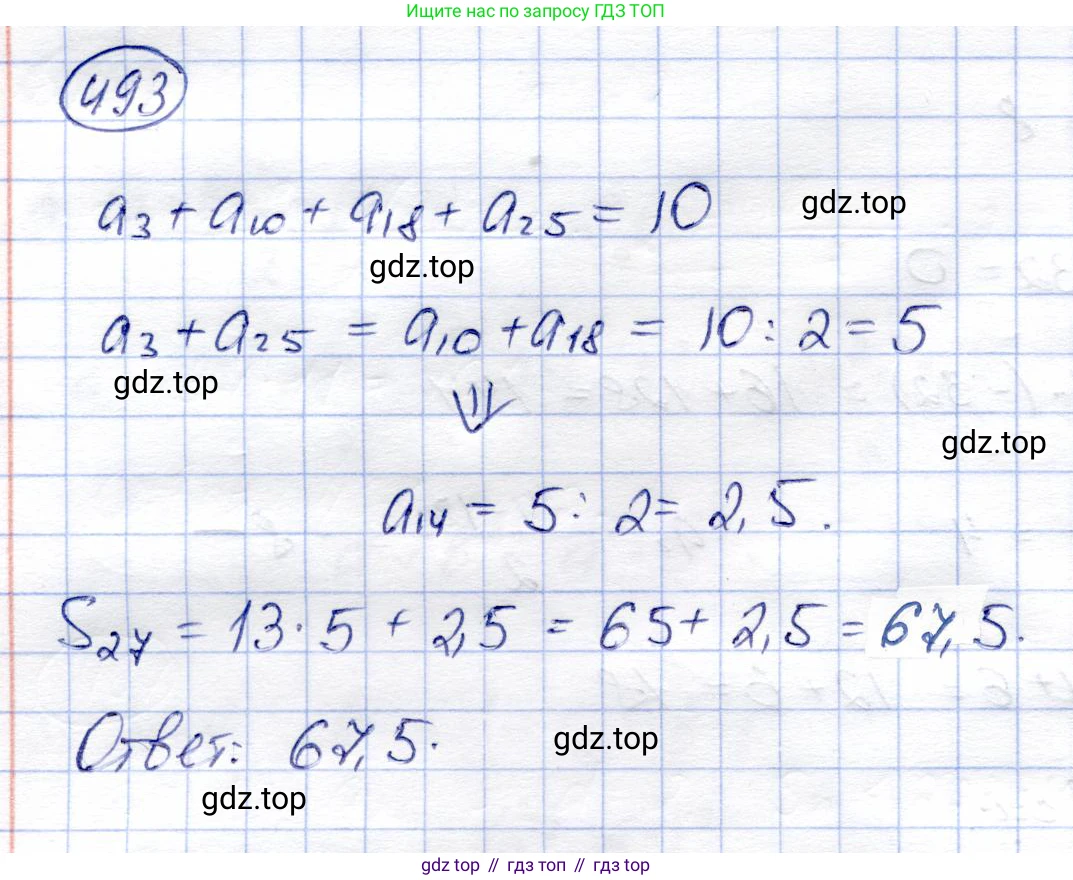 Ищите нас по запросу ГДЗ ТОП
493
a₃ + a₁₀ + a₁₈ + a₂₅ = 10
gdz.top
gdz.top
a₃ + a₂₅ = a₁₀ + a₁₈ = 10 : 2 = 5
gdz.top
⇓
gdz.top
a₁₄ = 5 : 2 = 2,5.
S₂₇ = 13 · 5 + 2,5 = 65 + 2,5 = 67,5.
Ответ: 67,5.
gdz.top
gdz.top
gdz top // гдз топ // гдз top